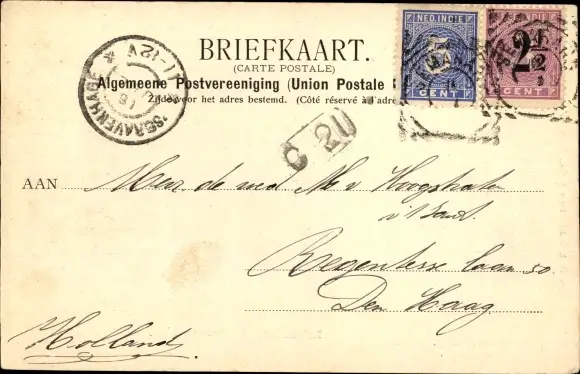 BRIEFKAART.
(CARTE POSTALE)
Algemeene Postvereeniging (Union Postale
Zijde voor het adres bestemd. (Côté réservé à l'adr
NED. INDIE
5
CENT
INDIE
2 1/2
CENT
'SGRAVENHAGE
11-12V
C 20
AAN Mevr. de wed v Hoogstraten
v 't Sant.
Regentesse laan 50
Den Haag
Holland